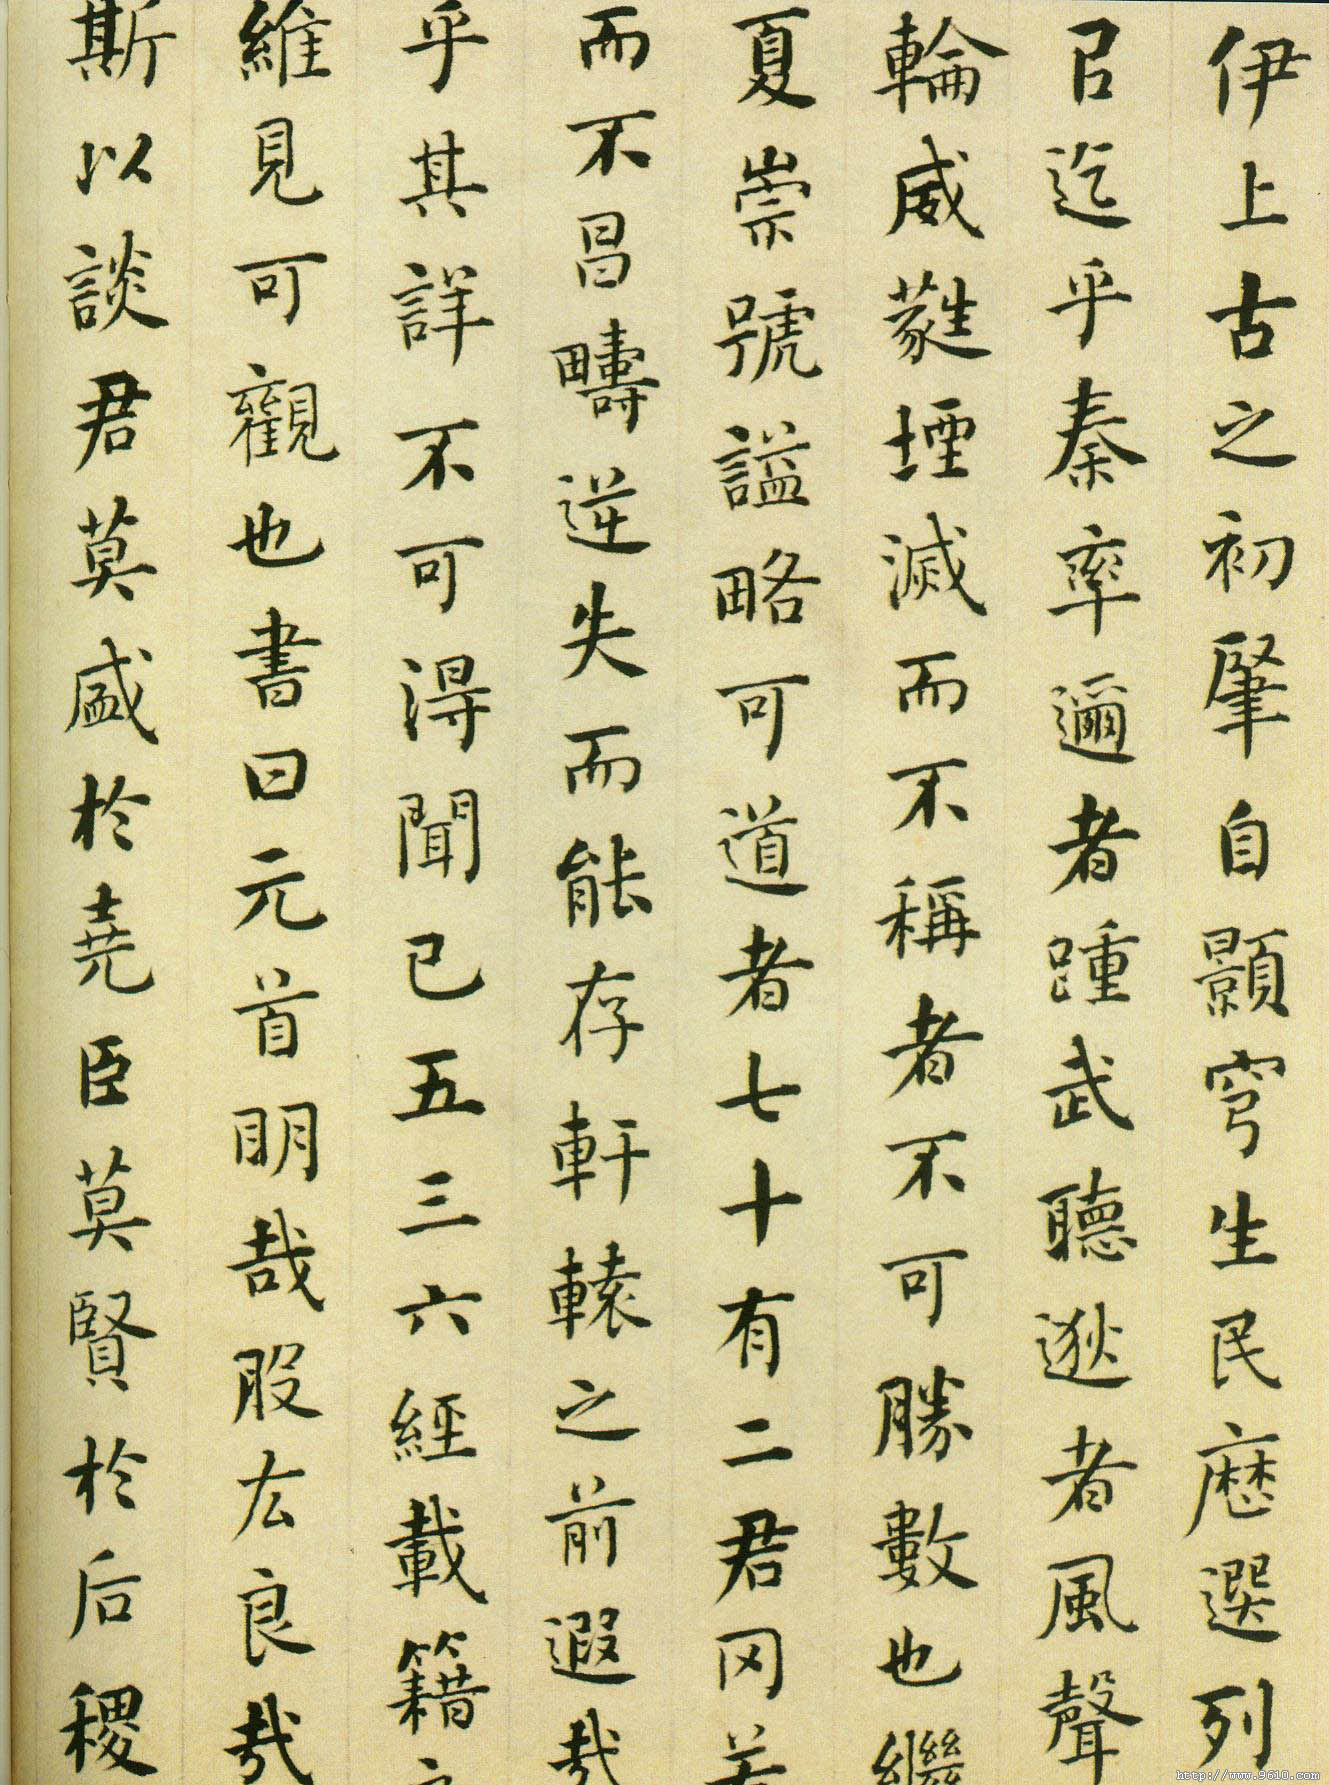 伊上古之初肇自顥穹生民歷選列
㠯迄乎秦率邇者踵武聽逖者風聲
輪威蕤堙滅而不稱者不可勝數也繼
夏崇號謚略可道者七十有二君罔若
而不昌疇逆失而能存軒轅之前遐哉
乎其詳不可得聞已五三六經載籍之
維見可觀也書曰元首明哉股厷良哉
斯以談君莫盛於堯臣莫賢於后稷
http://www.9610.com